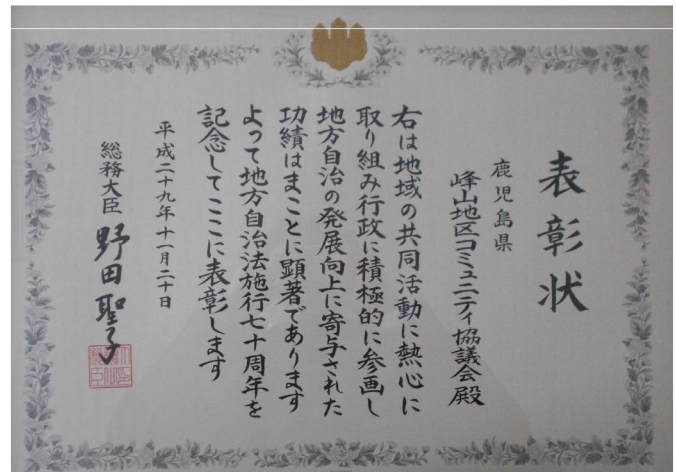 表彰状
鹿児島県
峰山地区コミュニティ協議会殿
右は地域の共同活動に熱心に
取り組み行政に積極的に参画し
地方自治の発展向上に寄与された
功績はまことに顕著であります
よって地方自治法施行七十周年を
記念してここに表彰します
平成二十九年十一月二十日
総務大臣 野田聖子